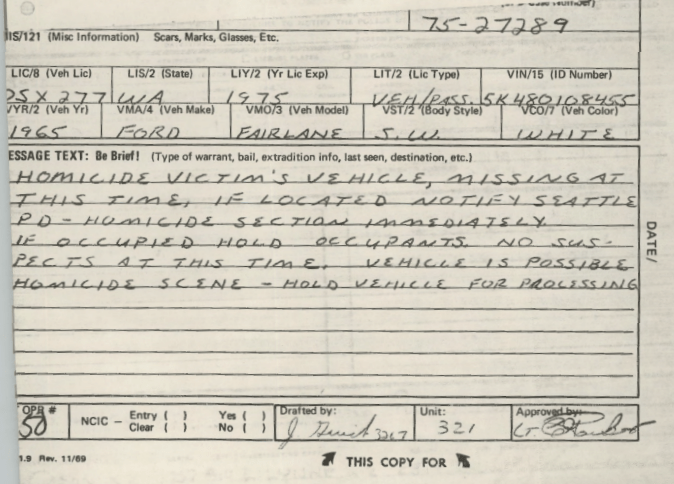 75-27289
(Misc Information) Scars, Marks, Glasses, Etc.
LIC/8 (Veh Lic) LIS/2 (State) LIY/2 (Yr Lic Exp) LIT/2 (Lic Type) VIN/15 (ID Number)
DSX 277 WA 1975 VEH/PASS. 5K480108455
VYR/2 (Veh Yr) VMA/4 (Veh Make) VMO/3 (Veh Model) VST/2 (Body Style) VCO/7 (Veh Color)
1965 FORD FAIRLANE S.W. WHITE
ESSAGE TEXT: Be Brief! (Type of warrant, bail, extradition info, last seen, destination, etc.)
HOMICIDE VICTIM'S VEHICLE, MISSING AT
THIS TIME, IF LOCATED NOTIFY SEATTLE
PD - HOMICIDE SECTION IMMEDIATELY.
IF OCCUPIED HOLD OCCUPANTS. NO SUS-
PECTS AT THIS TIME. VEHICLE IS POSSIBLE
HOMICIDE SCENE - HOLD VEHICLE FOR PROCESSING
DATE/
OPR # NCIC - Entry ( ) Yes ( ) Drafted by: Unit: Approved by:
50 Clear ( ) No ( ) J 3267 321 LT.
1.9 Rev. 11/69
THIS COPY FOR